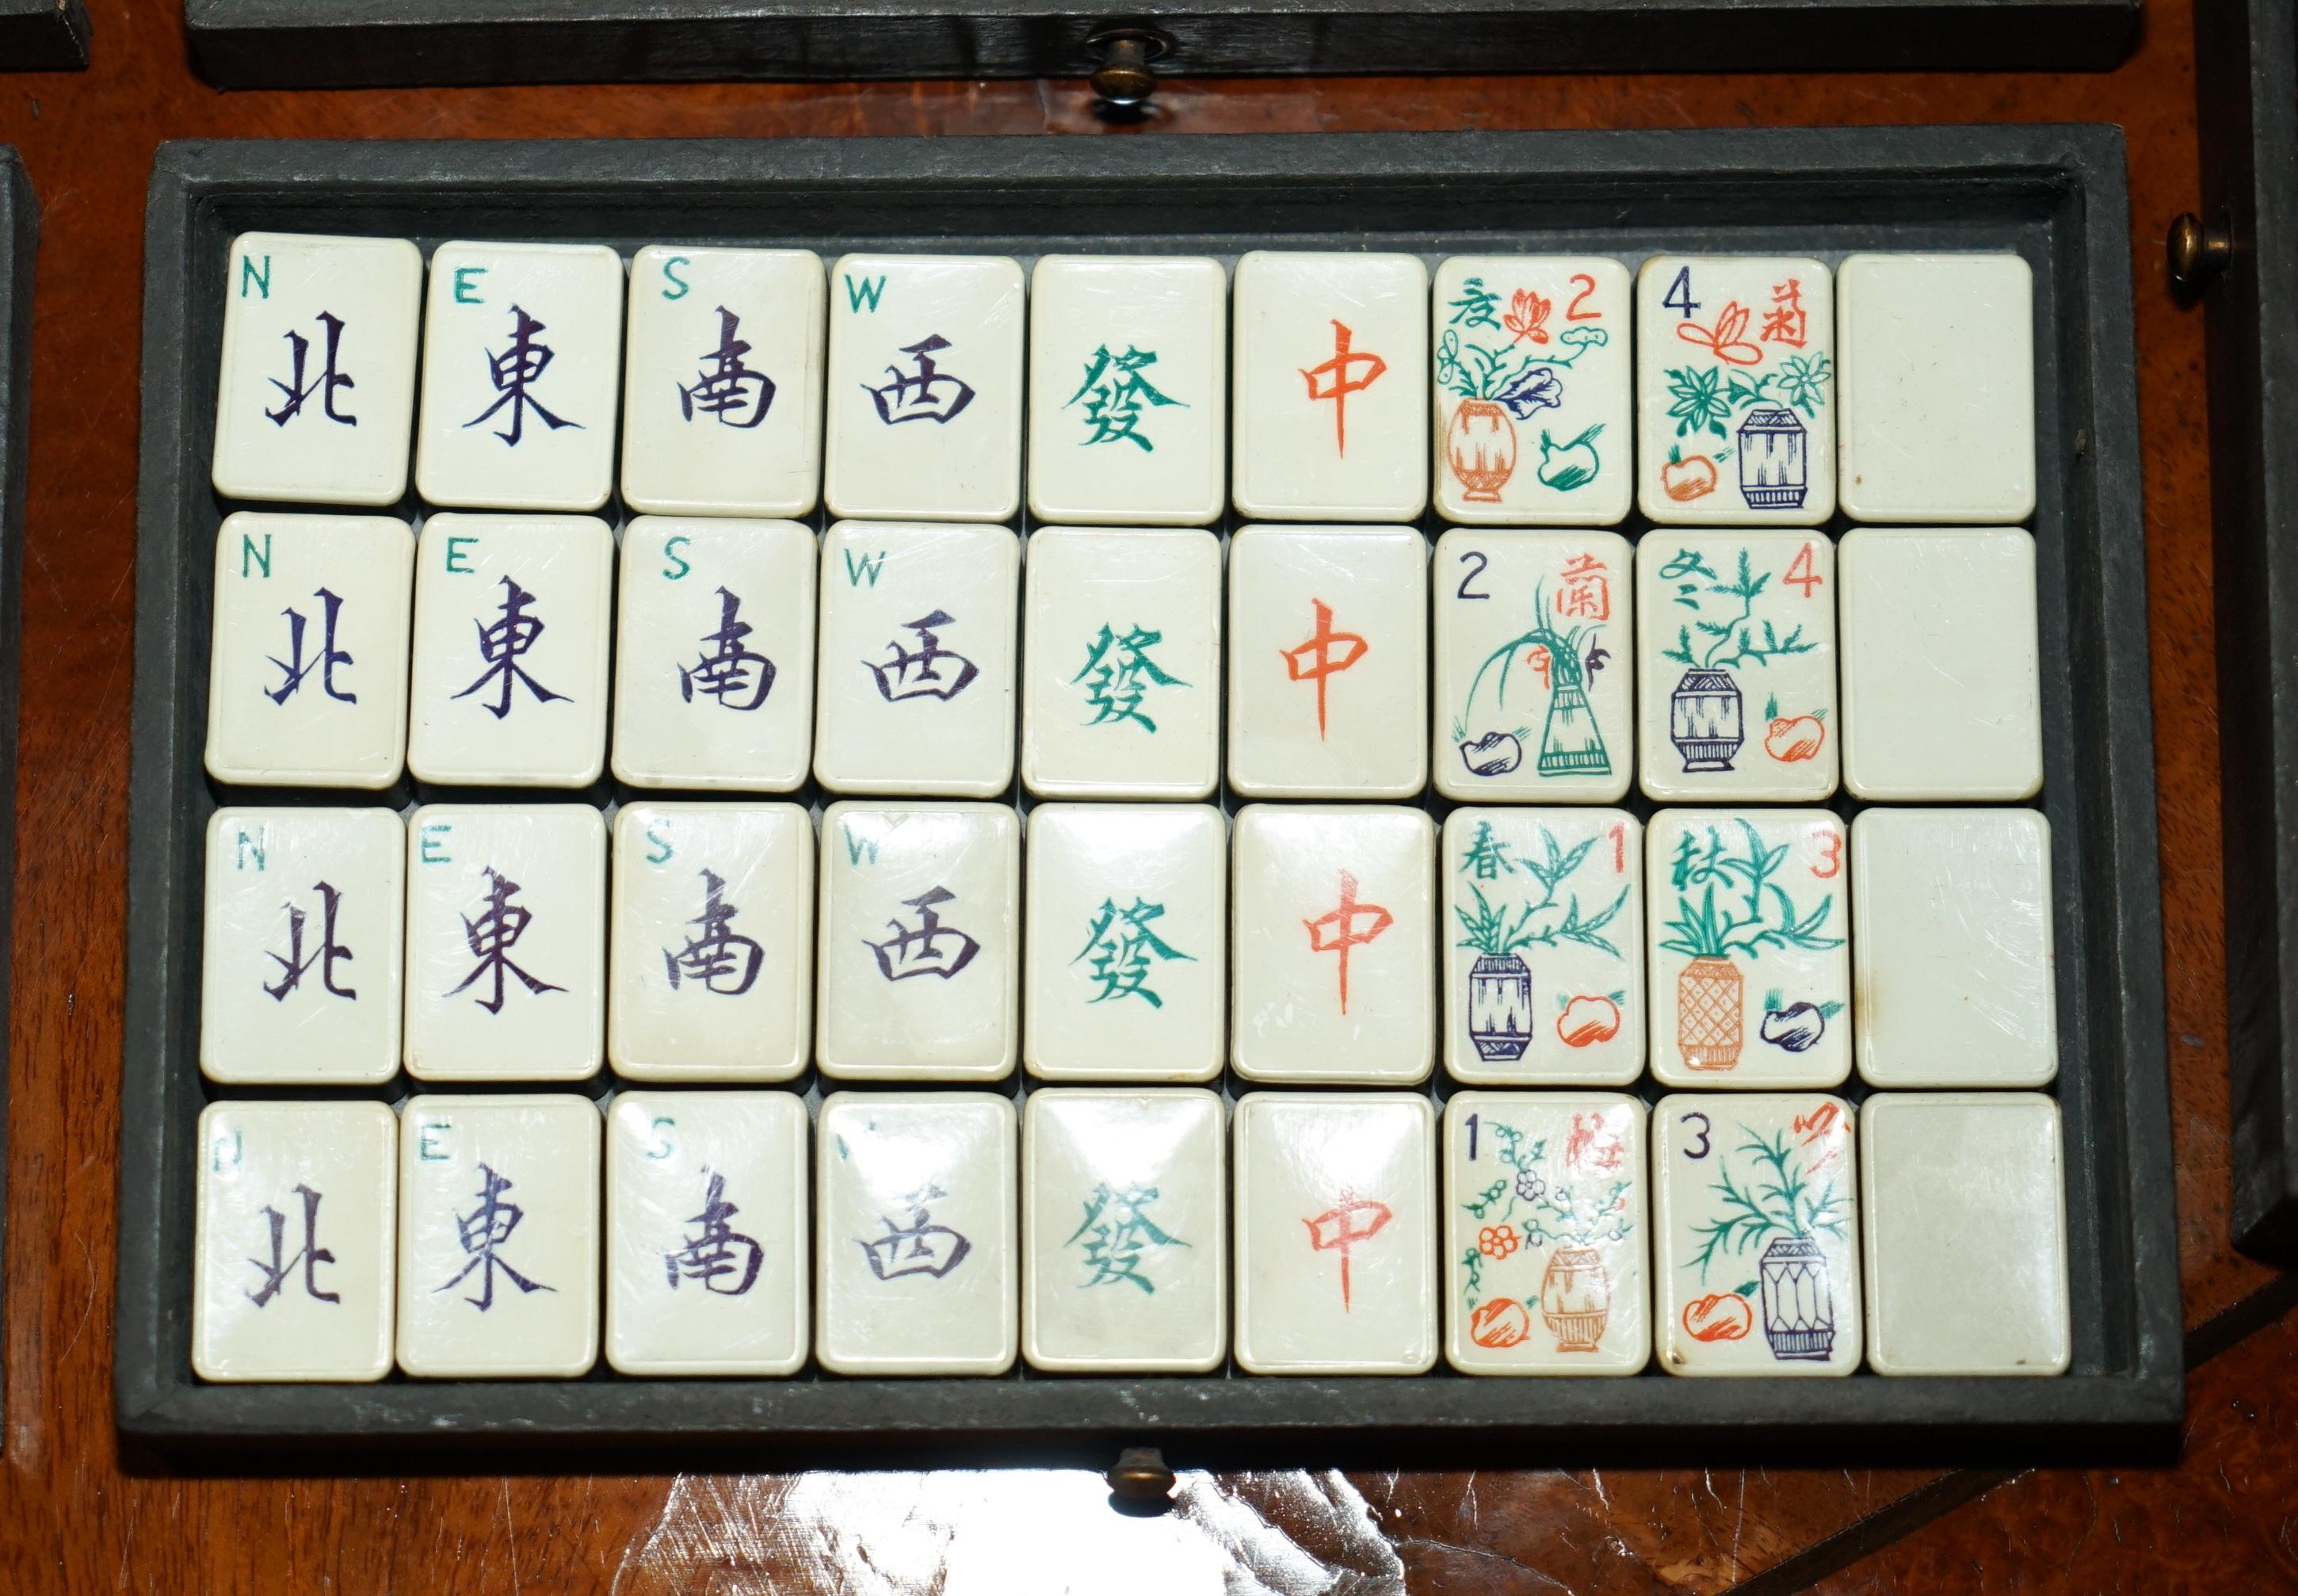 N E S W
北 東 南 西 發 中 夏 2 4 菊
N E S W
北 東 南 西 發 中 2 蘭 冬 4
N E S W
北 東 南 西 發 中 春 1 秋 3
N E S W
北 東 南 西 發 中 1 梅 3 竹